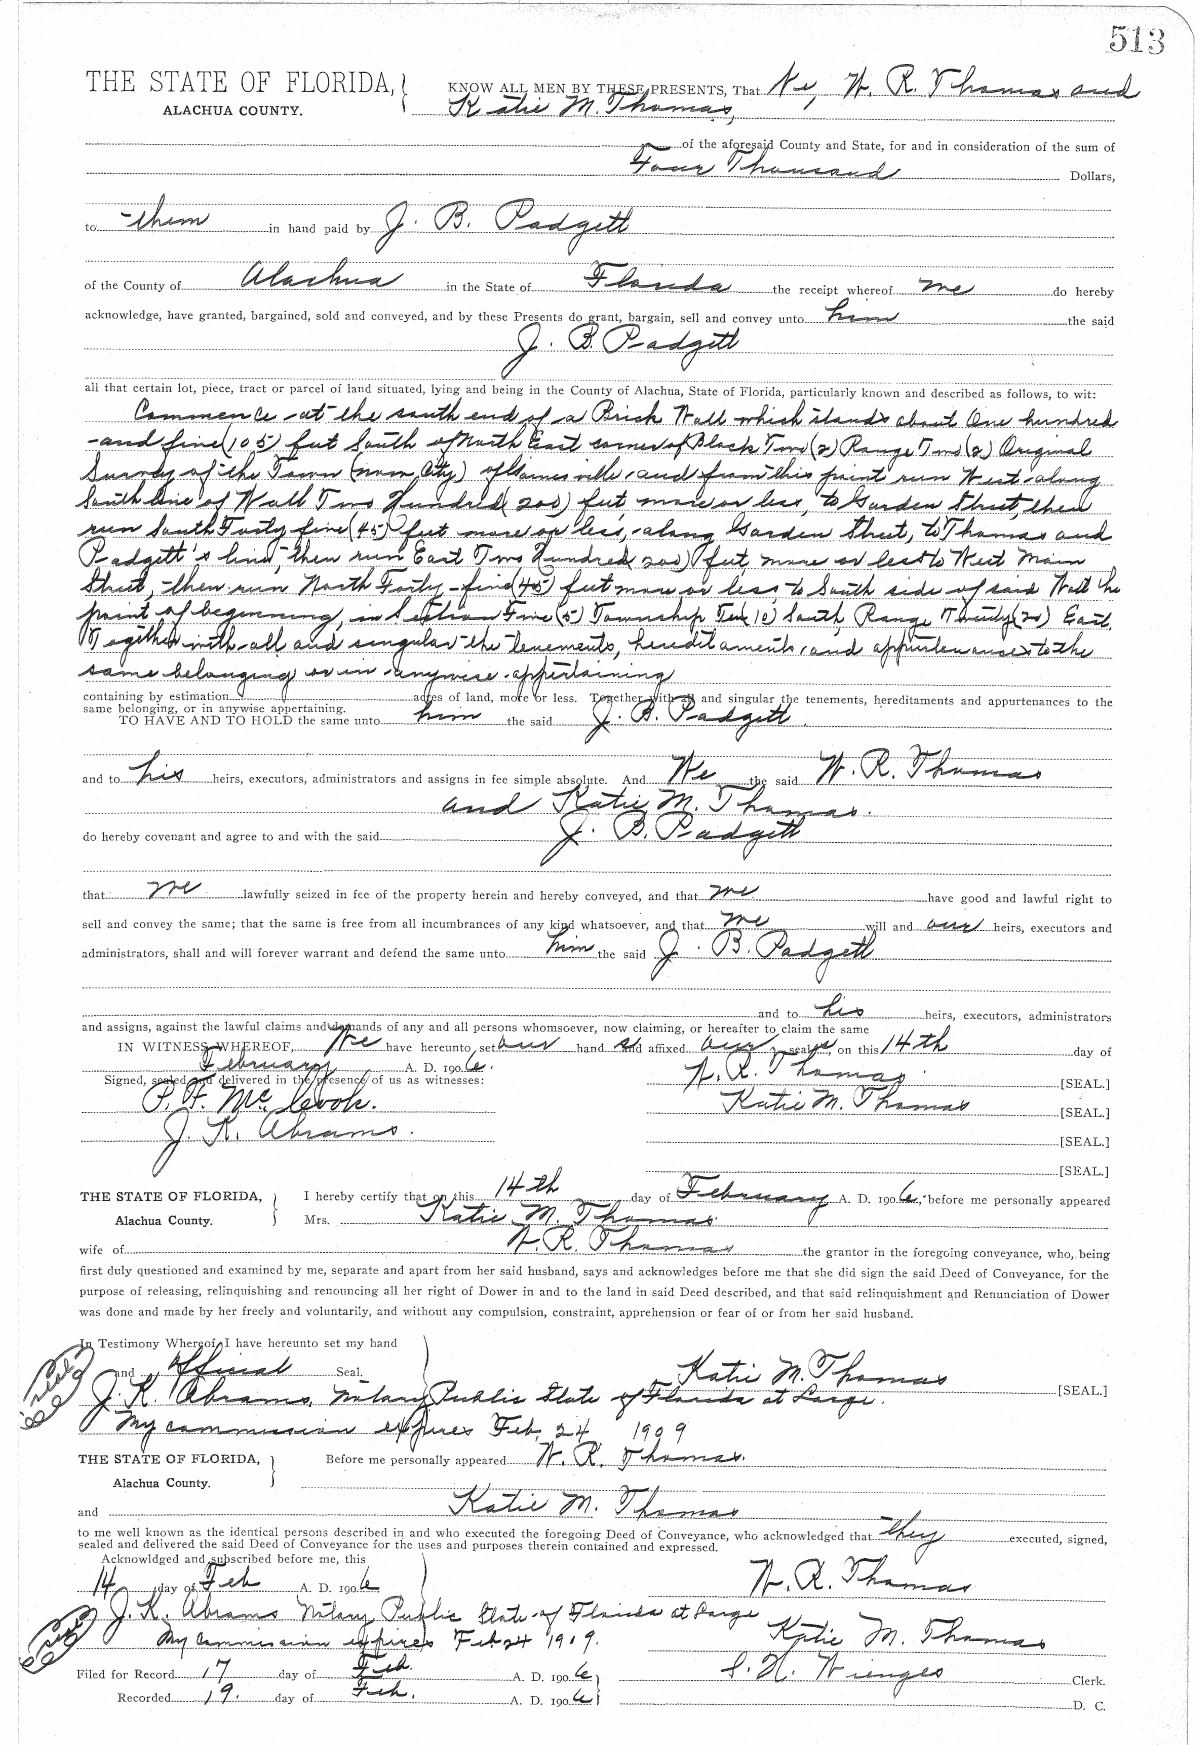 513
THE STATE OF FLORIDA, KNOW ALL MEN BY THESE PRESENTS, That We, W. R. Thomas and
ALACHUA COUNTY. Katie M. Thomas,
of the aforesaid County and State, for and in consideration of the sum of
Four Thousand Dollars,
to them in hand paid by J. B. Padgett
of the County of Alachua in the State of Florida the receipt whereof we do hereby
acknowledge, have granted, bargained, sold and conveyed, and by these Presents do grant, bargain, sell and convey unto him the said
J. B. Padgett
all that certain lot, piece, tract or parcel of land situated, lying and being in the County of Alachua, State of Florida, particularly known and described as follows, to wit:
Commence at the south end of a Brick Wall which stands about One hundred
and five (105) feet South of North East corner of Block Two (2) Range Two (2) Original
Survey of the Town (now City) of Gainesville, and from this point run West along
South line of Wall Two Hundred (200) feet more or less, to Garden Street, then
run South Forty five (45) feet more or less, along Garden Street, to Thomas and
Padgett's line, then run East Two Hundred (200) feet more or less to West Main
Street, then run North Forty-five (45) feet more or less to South side of said Wall the
point of beginning, in Section Five (5) Township Ten (10) South, Range Twenty (20) East.
Together with all and singular the tenements, hereditaments, and appurtenances to the
same belonging or in anywise appertaining
containing by estimation acres of land, more or less. Together with all and singular the tenements, hereditaments and appurtenances to the
same belonging, or in anywise appertaining.
TO HAVE AND TO HOLD the same unto him the said J. B. Padgett
and to his heirs, executors, administrators and assigns in fee simple absolute. And We the said W. R. Thomas
and Katie M. Thomas.
do hereby covenant and agree to and with the said J. B. Padgett
that we lawfully seized in fee of the property herein and hereby conveyed, and that we have good and lawful right to
sell and convey the same; that the same is free from all incumbrances of any kind whatsoever, and that we will and our heirs, executors and
administrators, shall and will forever warrant and defend the same unto him the said J. B. Padgett
and to his heirs, executors, administrators
and assigns, against the lawful claims and demands of any and all persons whomsoever, now claiming, or hereafter to claim the same
IN WITNESS WHEREOF, We have hereunto set our hand and affixed our seals, on this 14th day of
February A. D. 1906.
W. R. Thomas [SEAL.]
Signed, sealed and delivered in the presence of us as witnesses:
Katie M. Thomas [SEAL.]
J. K. Abrams. [SEAL.]
[SEAL.]
THE STATE OF FLORIDA, I hereby certify that on this 14th day of February A. D. 1906, before me personally appeared
Alachua County. Mrs. Katie M. Thomas
wife of W. R. Thomas the grantor in the foregoing conveyance, who, being
first duly questioned and examined by me, separate and apart from her said husband, says and acknowledges before me that she did sign the said Deed of Conveyance, for the
purpose of releasing, relinquishing and renouncing all her right of Dower in and to the land in said Deed described, and that said relinquishment and Renunciation of Dower
was done and made by her freely and voluntarily, and without any compulsion, constraint, apprehension or fear of or from her said husband.
In Testimony Whereof, I have hereunto set my hand
and official Seal. Katie M. Thomas [SEAL.]
J. K. Abrams, Notary Public State of Florida at Large.
My commission expires Feb. 24 1909
THE STATE OF FLORIDA, Before me personally appeared W. R. Thomas.
Alachua County.
and Katie M. Thomas
to me well known as the identical persons described in and who executed the foregoing Deed of Conveyance, who acknowledged that they executed, signed,
sealed and delivered the said Deed of Conveyance for the uses and purposes therein contained and expressed.
Acknowldged and subscribed before me, this
14 day of Feb A. D. 1906 W. R. Thomas
J. K. Abrams Notary Public State of Florida at Large
My Commission expires Feb 24 1909. Katie M. Thomas
Filed for Record 17 day of Feb. A. D. 1906 S. H. Wienges Clerk.
Recorded 19. day of Feb. A. D. 1906 D. C.